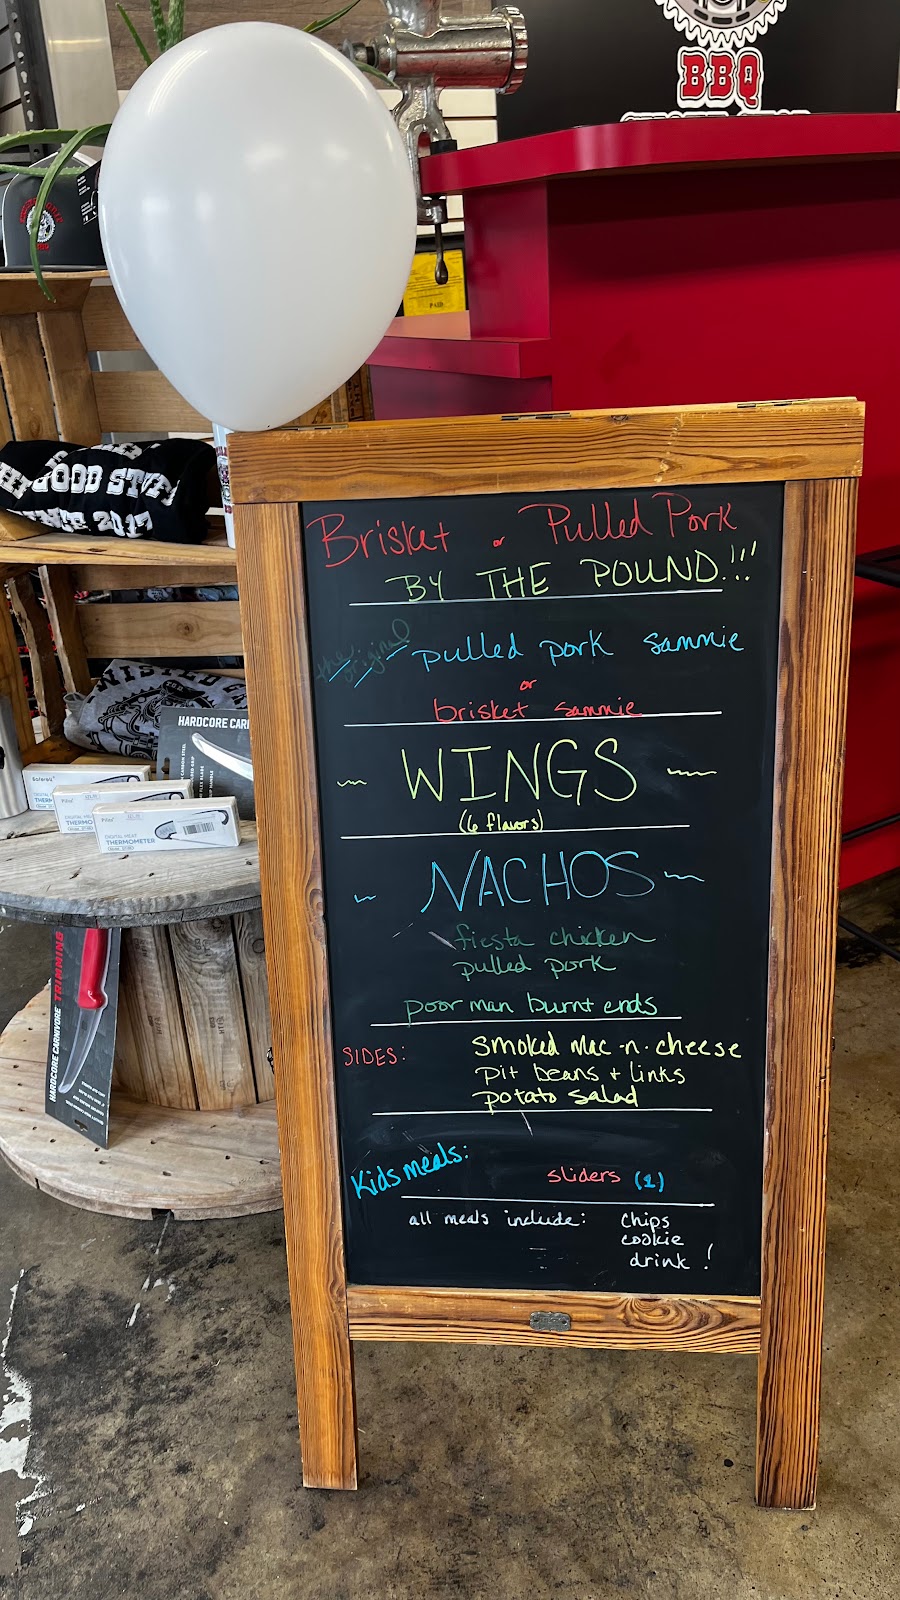 BBQ
GOOD STUFF
SINCE 2017
TWISTED GR
HARDCORE CARNI
THERMO
DIGITAL MEAT
THERMO
DIGITAL MEAT
THERMOMETER
HARDCORE CARNIVORE TRIMMING
Brisket or Pulled Pork
BY THE POUND!!!
the original pulled pork sammie
or
brisket sammie
~ WINGS ~
(6 flavors)
~ NACHOS ~
fiesta chicken
pulled pork
poor man burnt ends
SIDES: smoked mac-n-cheese
pit beans + links
potato salad
Kids meals: sliders (1)
all meals include: chips
cookie
drink!